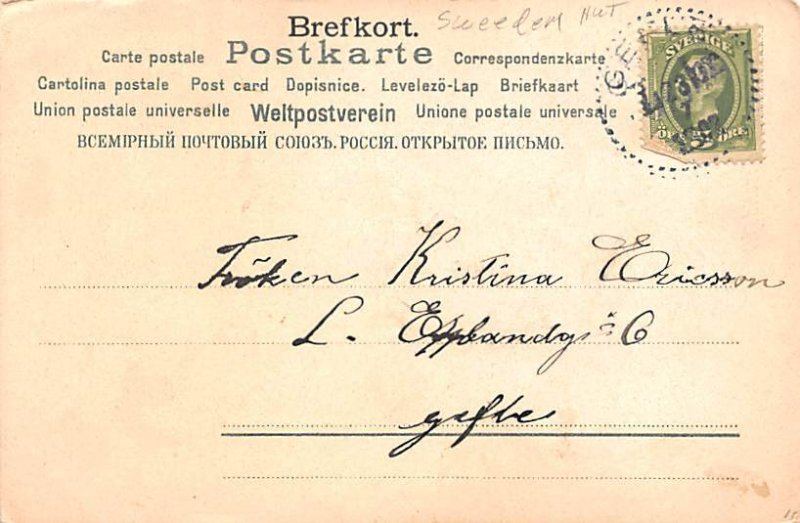 Sweeden Hut
Brefkort.
Carte postale Postkarte Correspondenzkarte
Cartolina postale Post card Dopisnice. Levelező-Lap Briefkaart
Union postale universelle Weltpostverein Unione postale universale
ВСЕМІРНЫЙ ПОЧТОВЫЙ СОЮЗЪ. РОССІЯ. ОТКРЫТОЕ ПИСЬМО.
SVERIGE
ÖRE
Fröken Kristina Ericsson
L. 6
gefle